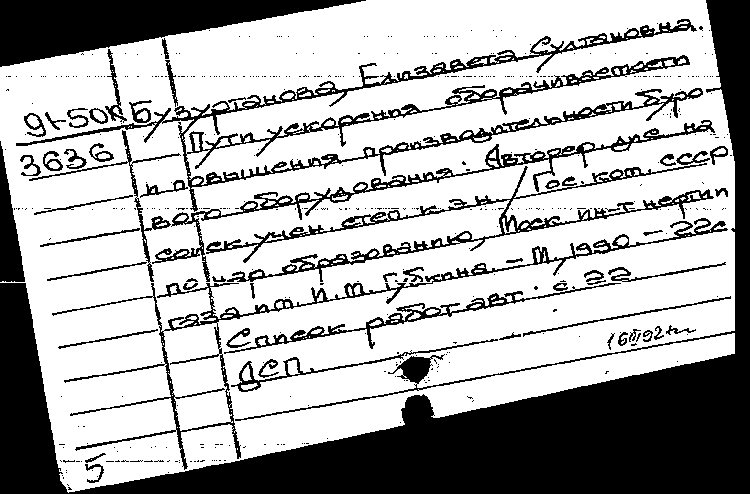 91-50к Бузуртанова, Елизавета Султановна.
3636 Пути ускорения оборачиваемости
и повышения производительности буро-
вого оборудования: Автореф. дис. на
соиск. учен. степ. к.э.н. / Гос. ком. СССР
по нар. образованию, Моск. ин-т нефти и
газа им. И.М. Губкина. - М., 1990. - 22с.
Список работ авт.: с. 22
ДСП.
5